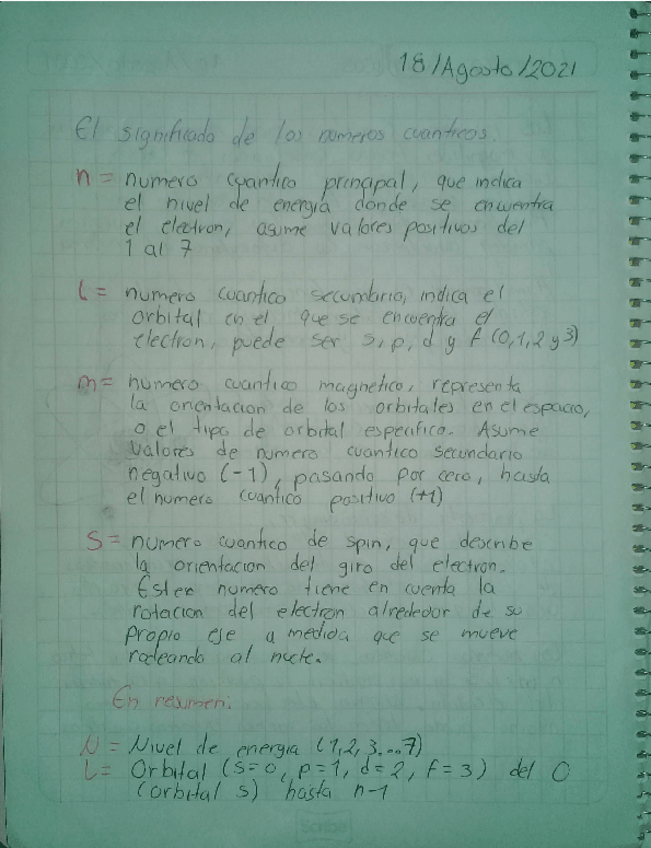 18/Agosto/2021
El significado de los numeros cuanticos.
n = numero cuantico principal, que indica
el nivel de energía donde se encuentra
el electron, asume valores positivos del
1 al 7
l = numero cuantico secundario, indica el
orbital en el que se encuentra el
electron, puede ser s, p, d y f (0, 1, 2 y 3)
m = numero cuantico magnetico, representa
la orientacion de los orbitales en el espacio,
o el tipo de orbital especifico. Asume
valores de numero cuantico secundario
negativo (-1), pasando por cero, hasta
el numero cuantico positivo (+1)
S = numero cuantico de spin, que describe
la orientacion del giro del electron.
Este numero tiene en cuenta la
rotacion del electron alrededor de su
propio eje a medida que se mueve
rodeando al
En resumen:
N = Nivel de energia (1, 2, 3...7)
L = Orbital (s=0, p=1, d=2, f=3) del 0
(orbital s) hasta n-1
Scribe